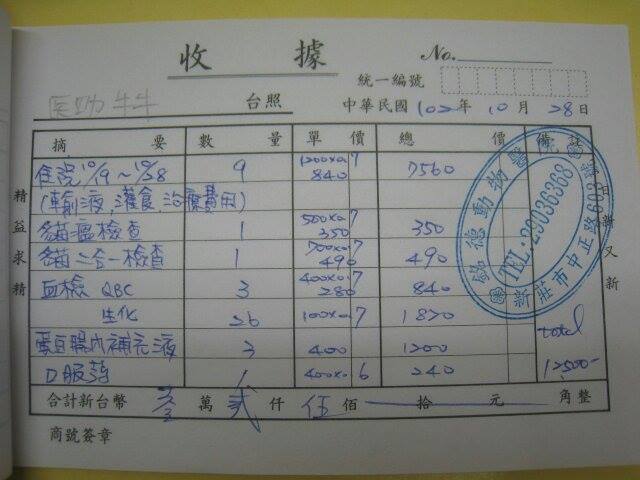 收據
No.
統一編號
醫助牛牛 台照 中華民國102年10月28日
摘要 數量 單價 總價 備註
住院10/9~10/28 9 1200x0.7 840 7560
(車輸液,灌食,治療費用)
貓瘟檢查 1 500x0.7 350 350
貓二合一檢查 1 700x0.7 490 490
血檢 QBC 3 400x0.7 280 840
生化 26 100x0.7 1820
蛋豆腸內補充液 3 400 1200
口服藥 1 400x0.6 240
total
12500-
合計新台幣 壹萬貳仟伍佰 拾 元 角整
商號簽章
精益求精
日新又新
銘德動物醫
TEL:29036368
新莊市中正路603號